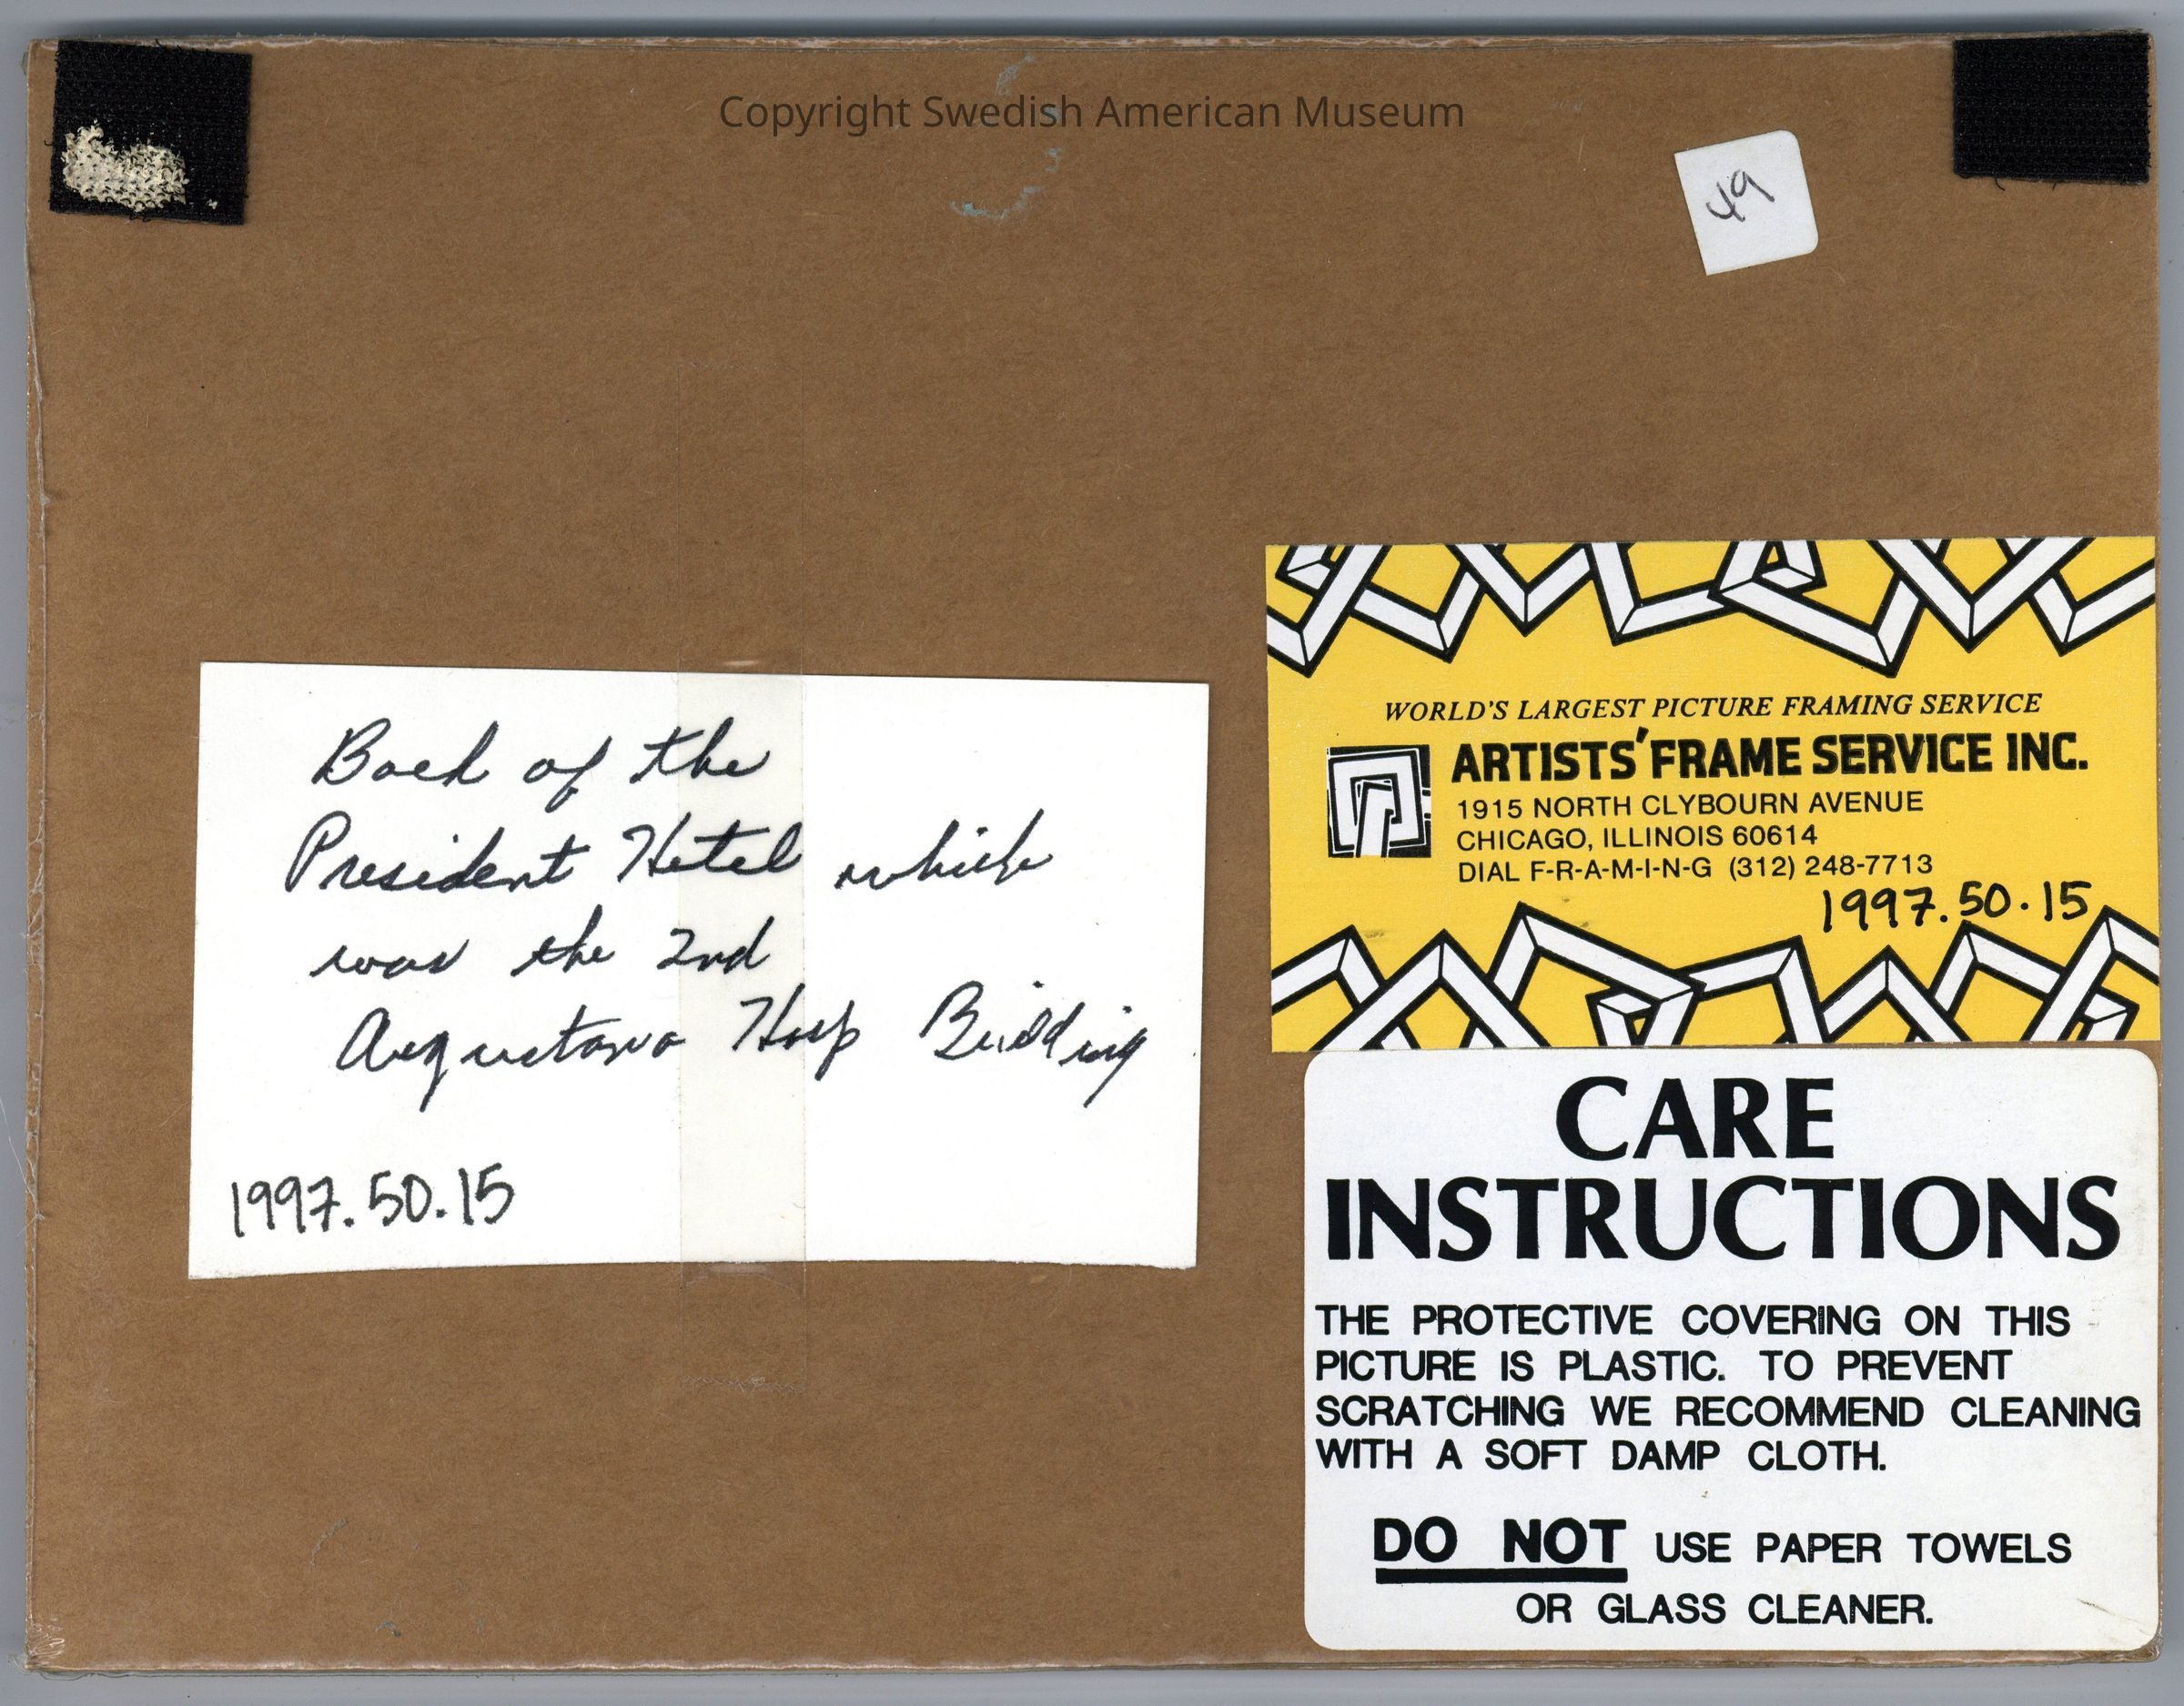 Copyright Swedish American Museum
49
Back of the
President Hotel which
was the 2nd
Augustana Hosp Building
1997.50.15
WORLD'S LARGEST PICTURE FRAMING SERVICE
ARTISTS' FRAME SERVICE INC.
1915 NORTH CLYBOURN AVENUE
CHICAGO, ILLINOIS 60614
DIAL F-R-A-M-I-N-G (312) 248-7713
1997.50.15
CARE
INSTRUCTIONS
THE PROTECTIVE COVERING ON THIS
PICTURE IS PLASTIC. TO PREVENT
SCRATCHING WE RECOMMEND CLEANING
WITH A SOFT DAMP CLOTH.
DO NOT USE PAPER TOWELS
OR GLASS CLEANER.